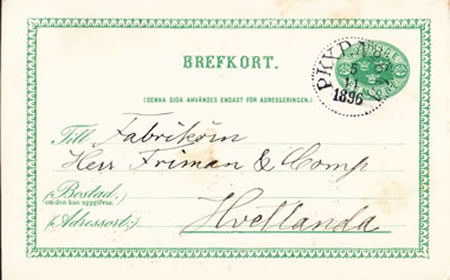 BREFKORT.
(DENNA SIDA ANVÄNDES ENDAST FÖR ADRESSERINGEN.)
5
11
1896
Till Fabrikörn
Herr Friman & Comp
(Bostad.)
om den kan uppgifvas.
(Adressort:) Hvetlanda